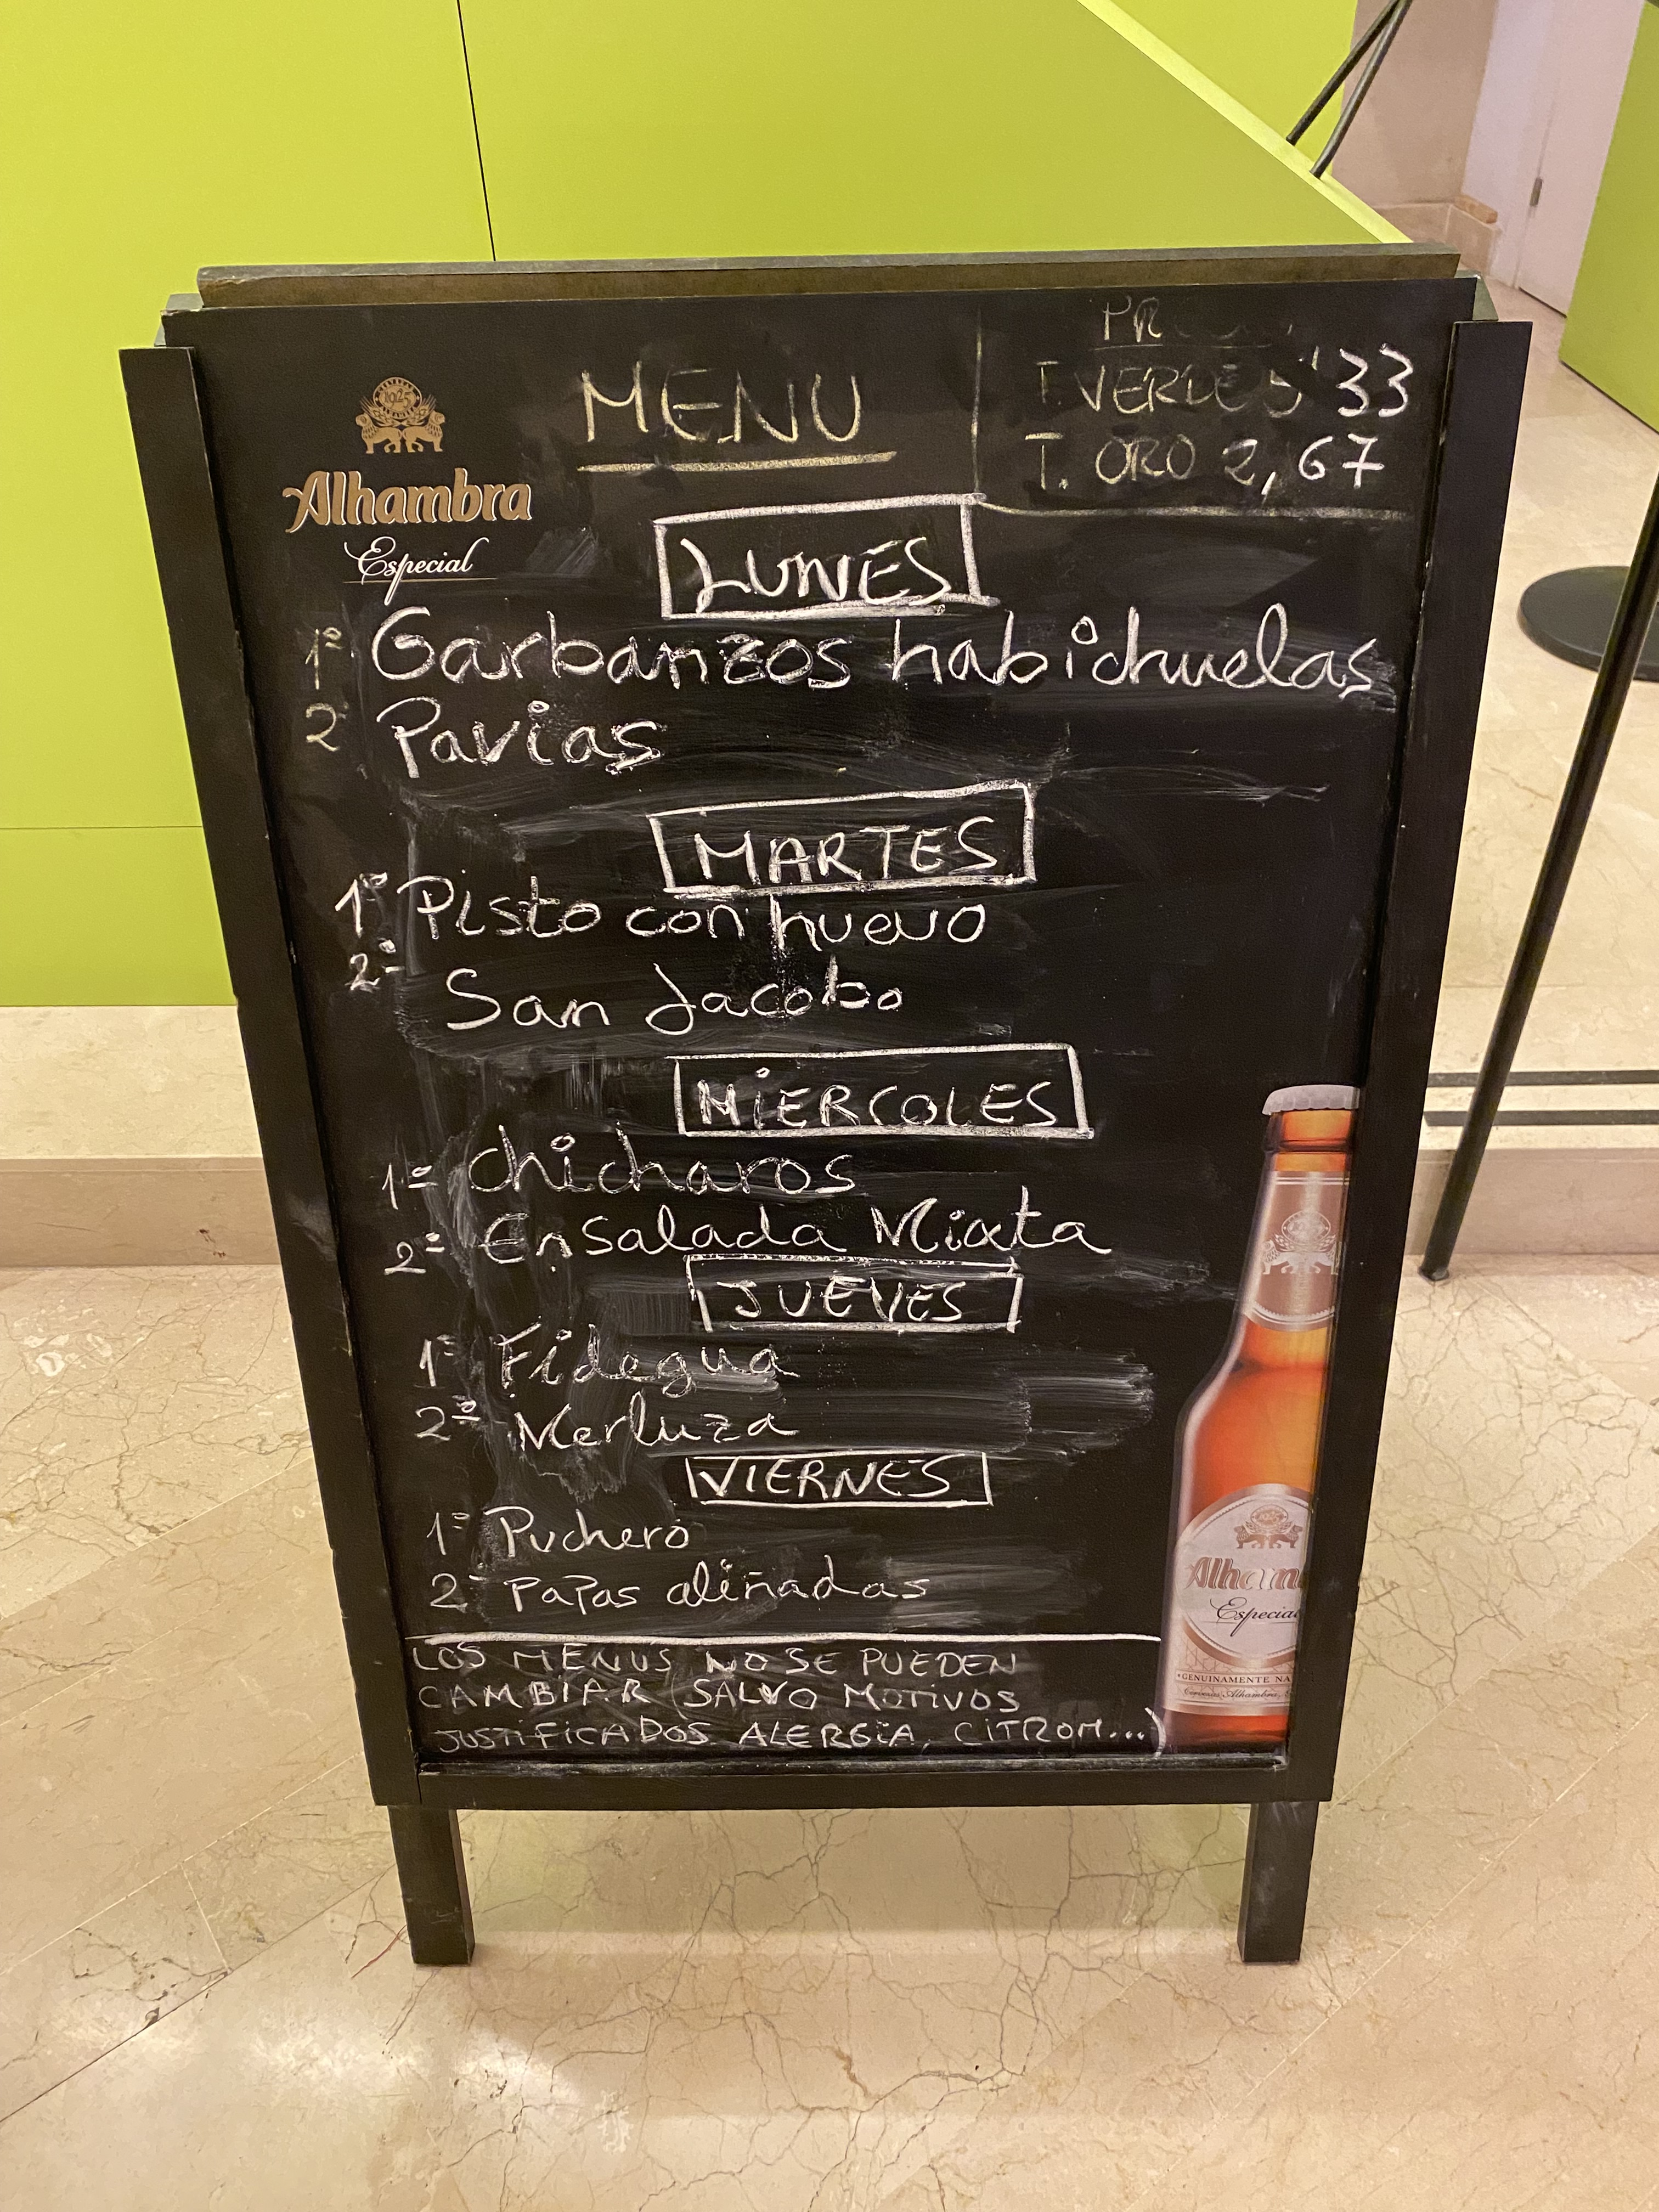 MENU
T. VERDE 5'33
T. ORO 2,67
1925
Alhambra
Especial
LUNES
1º Garbanzos habichuelas
2º Pavias
MARTES
1º Pisto con huevo
2º San Jacobo
MIERCOLES
1º chicharos
2º Ensalada Mixta
JUEVES
1º Fidegua
2º Merluza
VIERNES
1º Puchero
2º Papas aliñadas
LOS MENUS NO SE PUEDEN
CAMBIAR (SALVO MOTIVOS
JUSTIFICADOS ALERGIA, CITROM...)
Especial